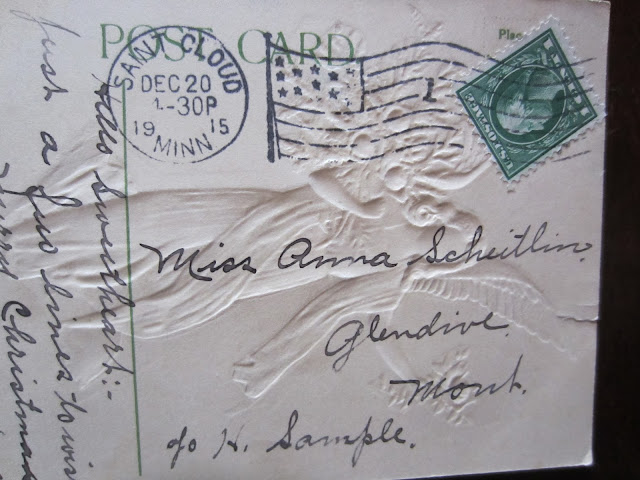 POST CARD
SAINT CLOUD
DEC 20
-30P
19 15
MINN
1
U.S. POSTAGE
Miss Anna Scheitlin.
Glendive.
Mont.
c/o H. Sample.
Hello Sweetheart:-
Just a few lines to
Christmas